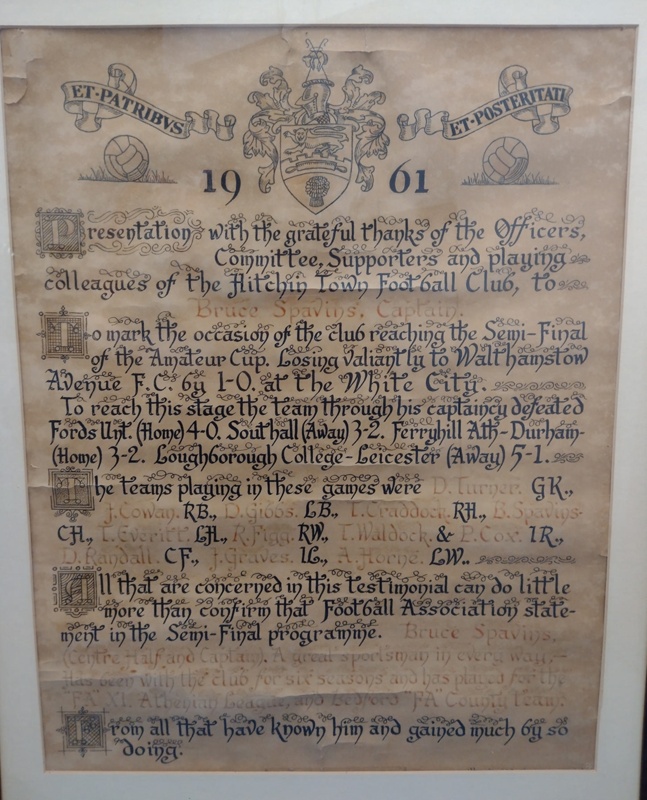 ET·PATRIBVS
ET·POSTERITATI
19 61
Presentation with the grateful thanks of the Officers,
Committee, Supporters and playing
colleagues of the Hitchin Town Football Club, to
Bruce Spavins, Captain.
To mark the occasion of the club reaching the Semi-Final
of the Amateur Cup. Losing valiantly to Walthamstow
Avenue F.C. by 1-0. at the White City.
To reach this stage the team through his captaincy defeated
Fords Unt. (Home) 4-0. Southall (Away) 3-2. Ferryhill Ath-Durham-
(Home) 3-2. Loughborough College-Leicester (Away) 5-1.
The teams playing in these games were D. Turner. GK.,
J. Cowan. RB., D. Gibbs. LB., T. Craddock. RH., B. Spavins.
CH., T. Everitt. LH., R. Figg. RW., T. Waldock. & P. Cox. IR.,
D. Randall. CF., J. Graves. IL., A. Horne. LW..
All that are concerned in this testimonial can do little
more than confirm that Football Association state-
ment in the Semi-Final programme. Bruce Spavins.
(Centre Half and Captain. A great sportsman in every way,-
Has been with the club for six seasons and has played for the
"FA" XI. Athenian League, and Bedford "FA" County Team.
From all that have known him and gained much by so
doing.